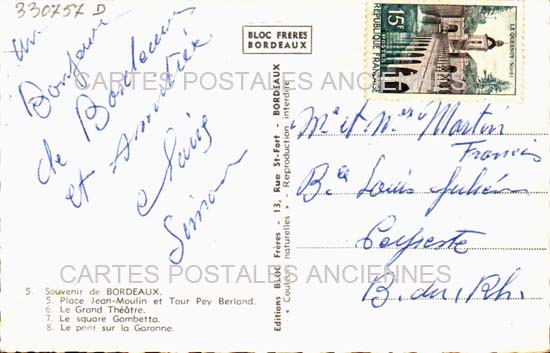 330757 D
un
Bonjour
de Bordeaux
et Amitiés
Simon
BLOC FRERES
BORDEAUX
REPUBLIQUE FRANÇAISE
15F
POSTES
LE QUESNOY
CARTES POSTALES ANCIENNES
Editions BLOC Frères - 13, Rue St-Fort - BORDEAUX
« Couleurs naturelles » - Reproduction interdite
Mr et Mme Martin
Francis
Bce Louis Julien
B. du Rh.
CARTES POSTALES ANCIENNES
5. Souvenir de BORDEAUX.
5. Place Jean-Moulin et Tour Pey Berland.
6. Le Grand Théâtre.
7. Le square Gambetta.
8. Le pont sur la Garonne.